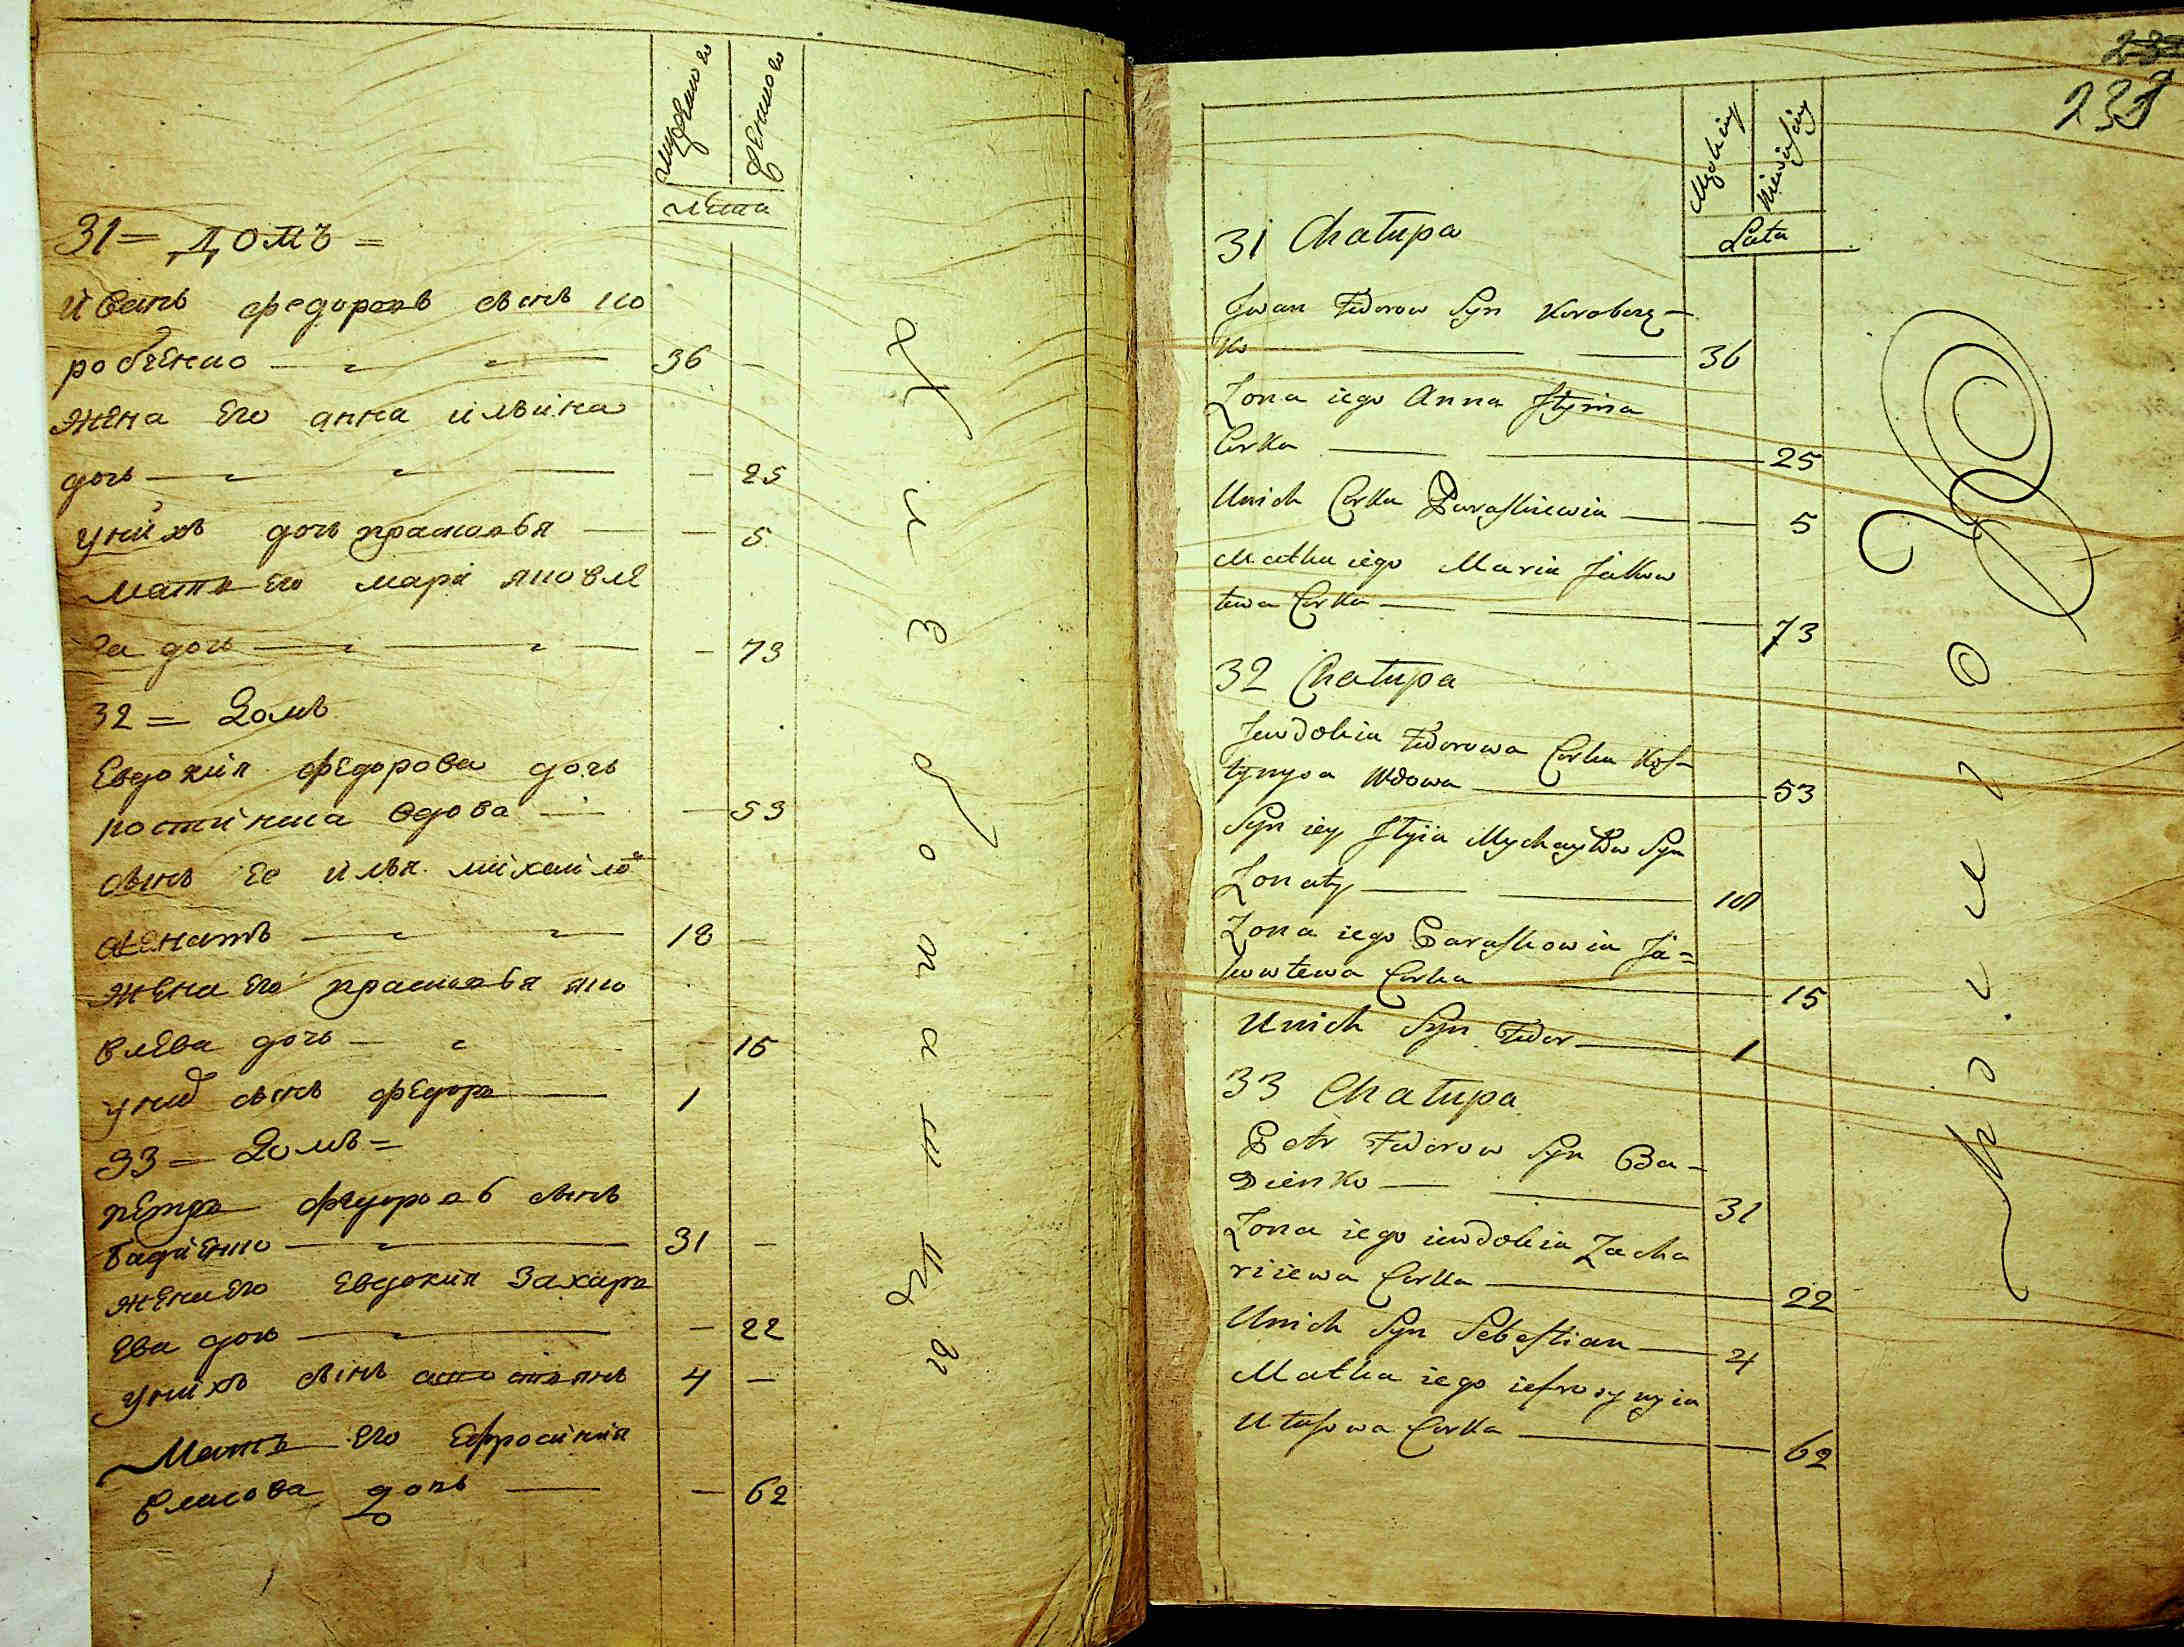 мужеска
женска
лѣта
31 = домъ =
иванъ федоровъ сынъ ко
робченко 36 —
жена его анна ильина
дочь — 25
унихъ дочь прасковья — 5
мать его марі яковле
ва дочь — 73
32 = домъ
Евдокия федорова дочь
костиниха вдова — 53
сынъ ее илья михаило
женатъ 18 —
жена его прасковья яко
влева дочь — 15
уних сынъ федоръ 1
33 = домъ =
петръ федоровъ сынъ
бадиенко 31 —
жена его Евдокия Захарь
ева дочь — 22
унихъ сынъ 4 —
Мать его Ефросиния
власова дочь — 62
233
Męzkiey
Niewieściey
Lata
31 Chałupa
Jwan Fedorow Syn Korobczę-
ko 36
Żona iego Anna Jlyina
Corka 25
Unich Corka Paraskiewia 5
Matka iego Maria Jakow
lewa Corka 73
32 Chałupa
Jewdokia Fedorowa Corka Kos-
tynysa Wdowa 53
Syn iey Jlyia Mychayłow Syn
Żonaty 18
Żona iego Paraskowia Ja=
kowlewa Corka 15
Unich Syn Fedor 1
33 Chałupa
Petr Fedorow Syn Ba-
dienko 31
Żona iego iewdokia Zacha
riiewa Corka 22
Unich Syn Sebestian 4
Matka iego iefrosynyia
Ułasowa Corka 62